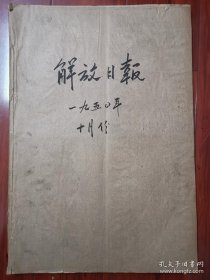 解放日報
一九五〇年
十月份
孔夫子旧书网